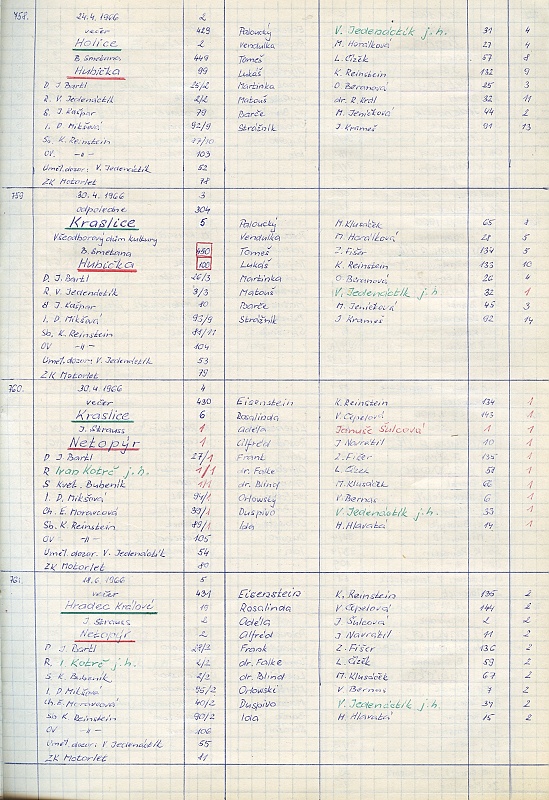 758. 24.4.1966 2
večer 429 Paloucký V. Jedenáctík j.h. 31 4
Holice 2 Vendulka M. Horálková 27 4
B. Smetana 449 Tomeš L. Čížek 57 8
Hubička 99 Lukáš K. Reinstein 132 9
D. J. Bartl 25/2 Martinka O. Beranová 25 3
R. V. Jedenáctík 2/2 Matouš dr. R. Král 32 11
S. J. Kašpar 79 Barče M. Jeníčková 44 2
I. D. Mikšová 92/9 Strážník J. Krameš 91 13
Sb. K. Reinstein 77/10
OV. -"- 103
Uměl. dozor: V. Jedenáctík 52
ZK Motorlet 78
759 30.4.1966 3
odpoledne 304
Kraslice 5 Paloucký M. Klusáček 65 8
Všeodborový dům kultury Vendulka M. Horálková 28 5
B. Smetana 450 Tomeš Z. Fišer 134 5
Hubička 100 Lukáš K. Reinstein 133 10
D. J. Bartl 26/3 Martinka O. Beranová 26 4
R. V. Jedenáctík 3/3 Matouš V. Jedenáctík j.h 32 1
S J. Kašpar 80 Barče M. Jeníčková 45 3
I. D. Mikšová 93/9 Strážník J. Krameš 92 14
Sb. K. Reinstein 81/11
OV -"- 104
Uměl. dozor: V. Jedenáctík 53
ZK Motorlet 79
760. 30.4.1966 4
večer 430 Eisenstein K. Reinstein 134 1
Kraslice 6 Rosalinda V. Čepelová 143 1
J. Strauss 1 Adéla Januše Šulcová 1 1
Netopýr 1 Alfréd J Navrátil 10 1
D J. Bartl 27/1 Frank Z. Fišer 135 1
R Ivan Kotrč j.h. 1/1 dr. Falke L. Čížek 58 1
S Květ. Bubeník 1/1 dr. Blind M. Klusáček 66 1
I. D. Mikšová 94/1 Orlowský V Bernas 6 1
Ch. E. Moravcová 39/1 Duspivo V Jedenáctík j.h. 33 1
Sb. K. Reinstein 89/1 Ida H. Hlavatá 14 1
OV -"- 105
Uměl dozor. V. Jedenáctík 54
ZK Motorlet 80
761. 18.6.1966 5
večer 431 Eisenstein K. Reinstein 135 2
Hradec Králové 19 Rosalinda V Čepelová 144 2
J. Strauss 2 Adéla J. Šulcová 2 2
Netopýr 2 Alfréd J Navrátil 11 2
D J. Bartl 28/2 Frank Z. Fišer 136 2
R. I. Kotrč j.h. 2/2 dr. Falke L. Čížek 59 2
S K. Bubeník 2/2 dr. Blind M. Klusáček 67 2
I. D. Mikšová 95/2 Orlowski V Bernas 7 2
Ch. E. Moravcová 40/2 Duspivo V. Jedenáctík j.h. 34 2
Sb K. Reinstein 90/2 Ida H Hlavatá 15 2
OV -"- 106
Uměl dozor: V. Jedenáctík 55
ZK Motorlet 11